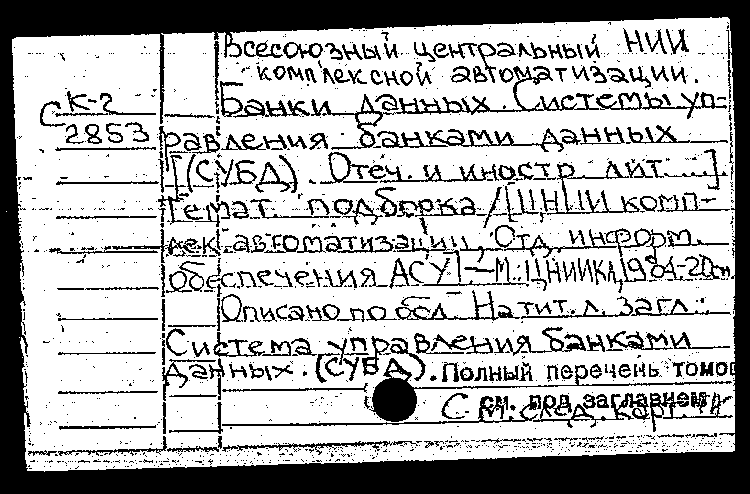 Всесоюзный центральный НИИ
комплексной автоматизации.
С К-2
2853
Банки данных. Системы уп-
равления банками данных
[(СУБД). Отеч. и иностр. лит. ...].
Темат. подборка / [ЦНИИ комп-
лек. автоматизации, Отд. информ.
обеспечения АСУ]. — М.: ЦНИИКА, 1984. - 20см
Описано по обл. На тит. л. загл.:
Система управления банками
данных. (СУБД). Полный перечень томов
см. под заглавием
С м. след. карт.